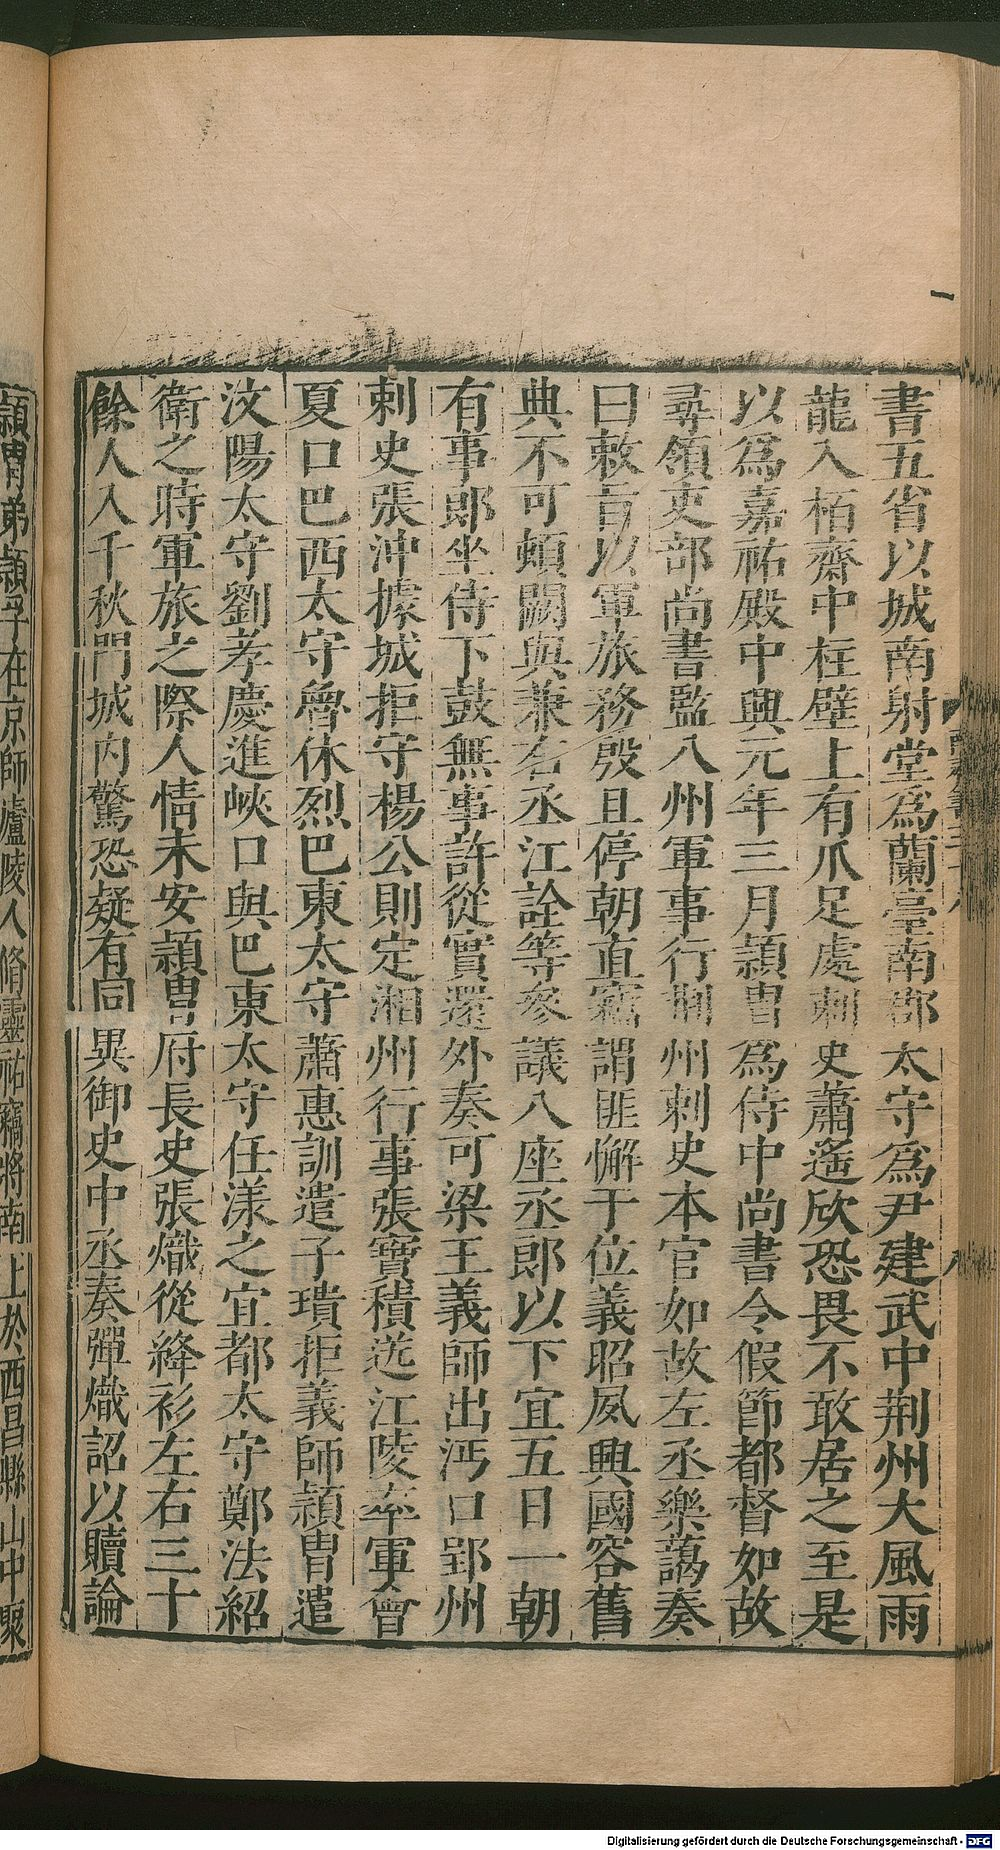 書五省以城南射堂爲蘭臺南郡太守爲尹建武中荆州大風雨
龍入栢齋中柱壁上有爪足處刺史蕭遙欣恐畏不敢居之至是
以爲嘉祐殿中興元年三月頴胄爲侍中尚書令假節都督如故
尋領吏部尚書監八州軍事行荆州刺史本官如故左丞樂藹奏
曰敕旨以軍旅務殷且停朝直竊謂匪懈于位義昭夙興國容舊
典不可頓闕與兼右丞江詮等參議八座丞郎以下宜五日一朝
有事郎坐侍下鼓無事許從實還外奏可梁王義師出沔口郢州
刺史張沖據城拒守楊公則定湘州行事張寶積送江陵率軍會
夏口巴西太守魯休烈巴東太守蕭惠訓遣子璝拒義師頴胄遣
汶陽太守劉孝慶進峽口與巴東太守任漾之宜都太守鄭法紹
衛之時軍旅之際人情未安頴胄府長史張熾從絳衫左右三十
餘人入千秋門城内驚恐疑有同異御史中丞奏彈熾詔以贖論
頴胄弟頴孚在京師廬陵人脩靈祐竊將南上於西昌縣山中聚
Digitalisierung gefördert durch die Deutsche Forschungsgemeinschaft - DFG